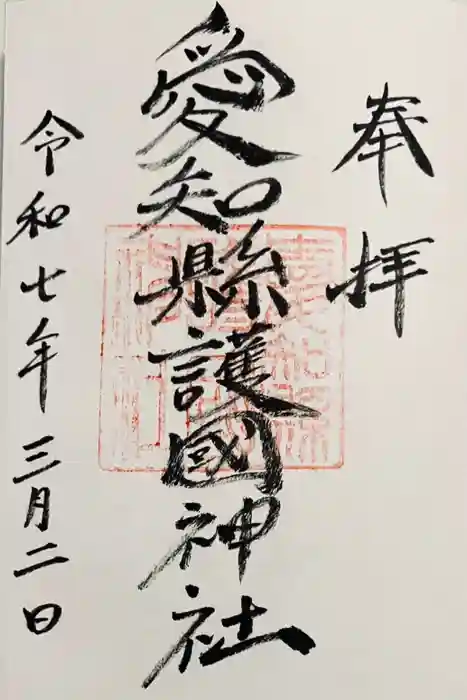 奉拝
愛知縣護國神社
令和七年三月二日